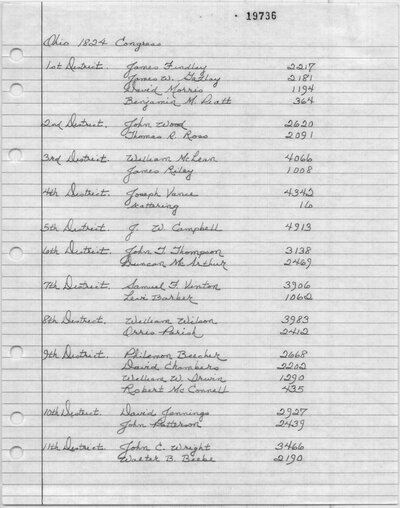 19736
Ohio 1824 Congress
1st District. James Findley 2217
James W. Gazlay 2181
David Morris 1194
Benjamin M. Piatt 364
2nd District. John Wood 2620
Thomas R. Ross 2091
3rd District. William McLean 4066
James Riley 1008
4th District. Joseph Vance 4342
Scattering 16
5th District. J. W. Campbell 4913
6th District. John T. Thompson 3138
Duncan McArthur 2469
7th District. Samuel F. Vinton 3906
Levi Barber 1062
8th District. William Wilson 3983
Orris Parish 2412
9th District. Philemon Beecher 2668
David Chambers 2202
William W. Irwin 1290
Robert McConnell 435
10th District. David Jennings 2927
John Patterson 2439
11th District. John C. Wright 3466
Walter B. Beebe 2190